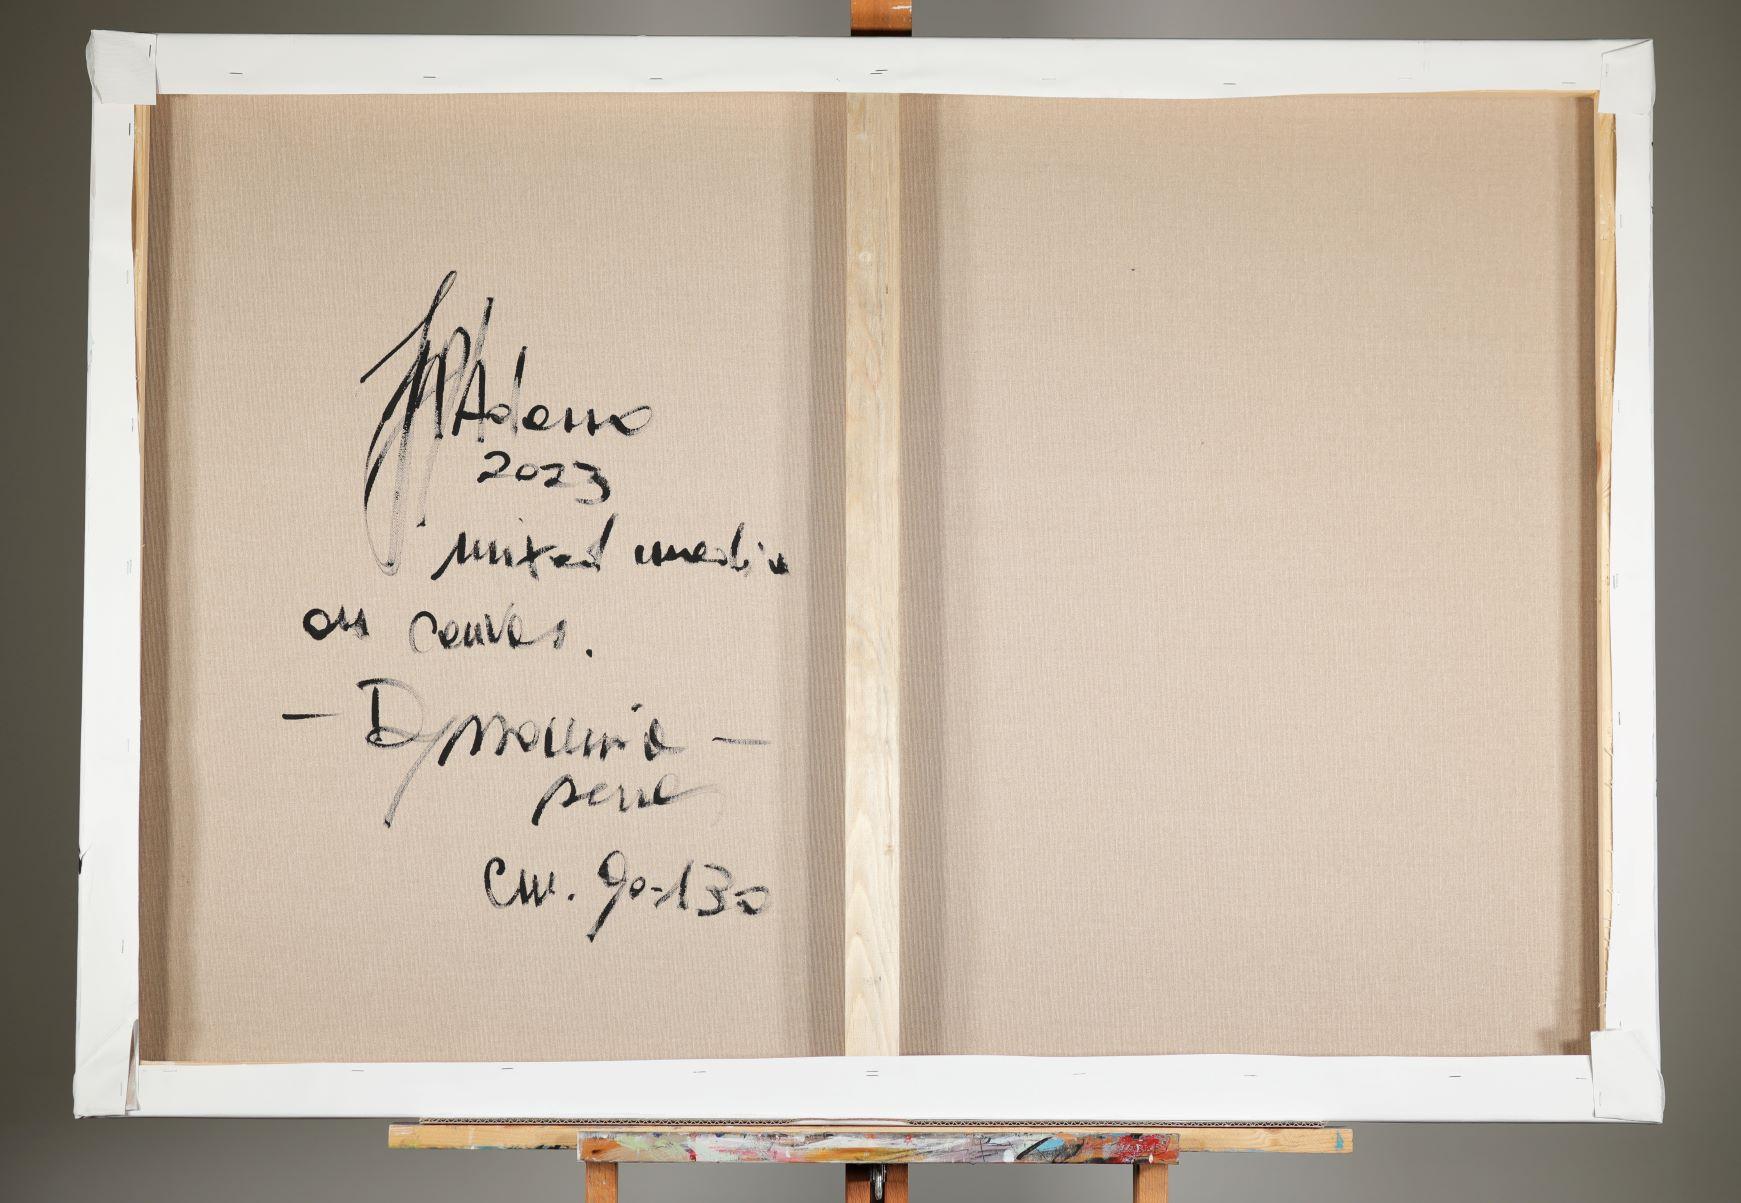 Adamo
2023
mixed media
on canvas.
- Dynamic -
series
cm. 90-130